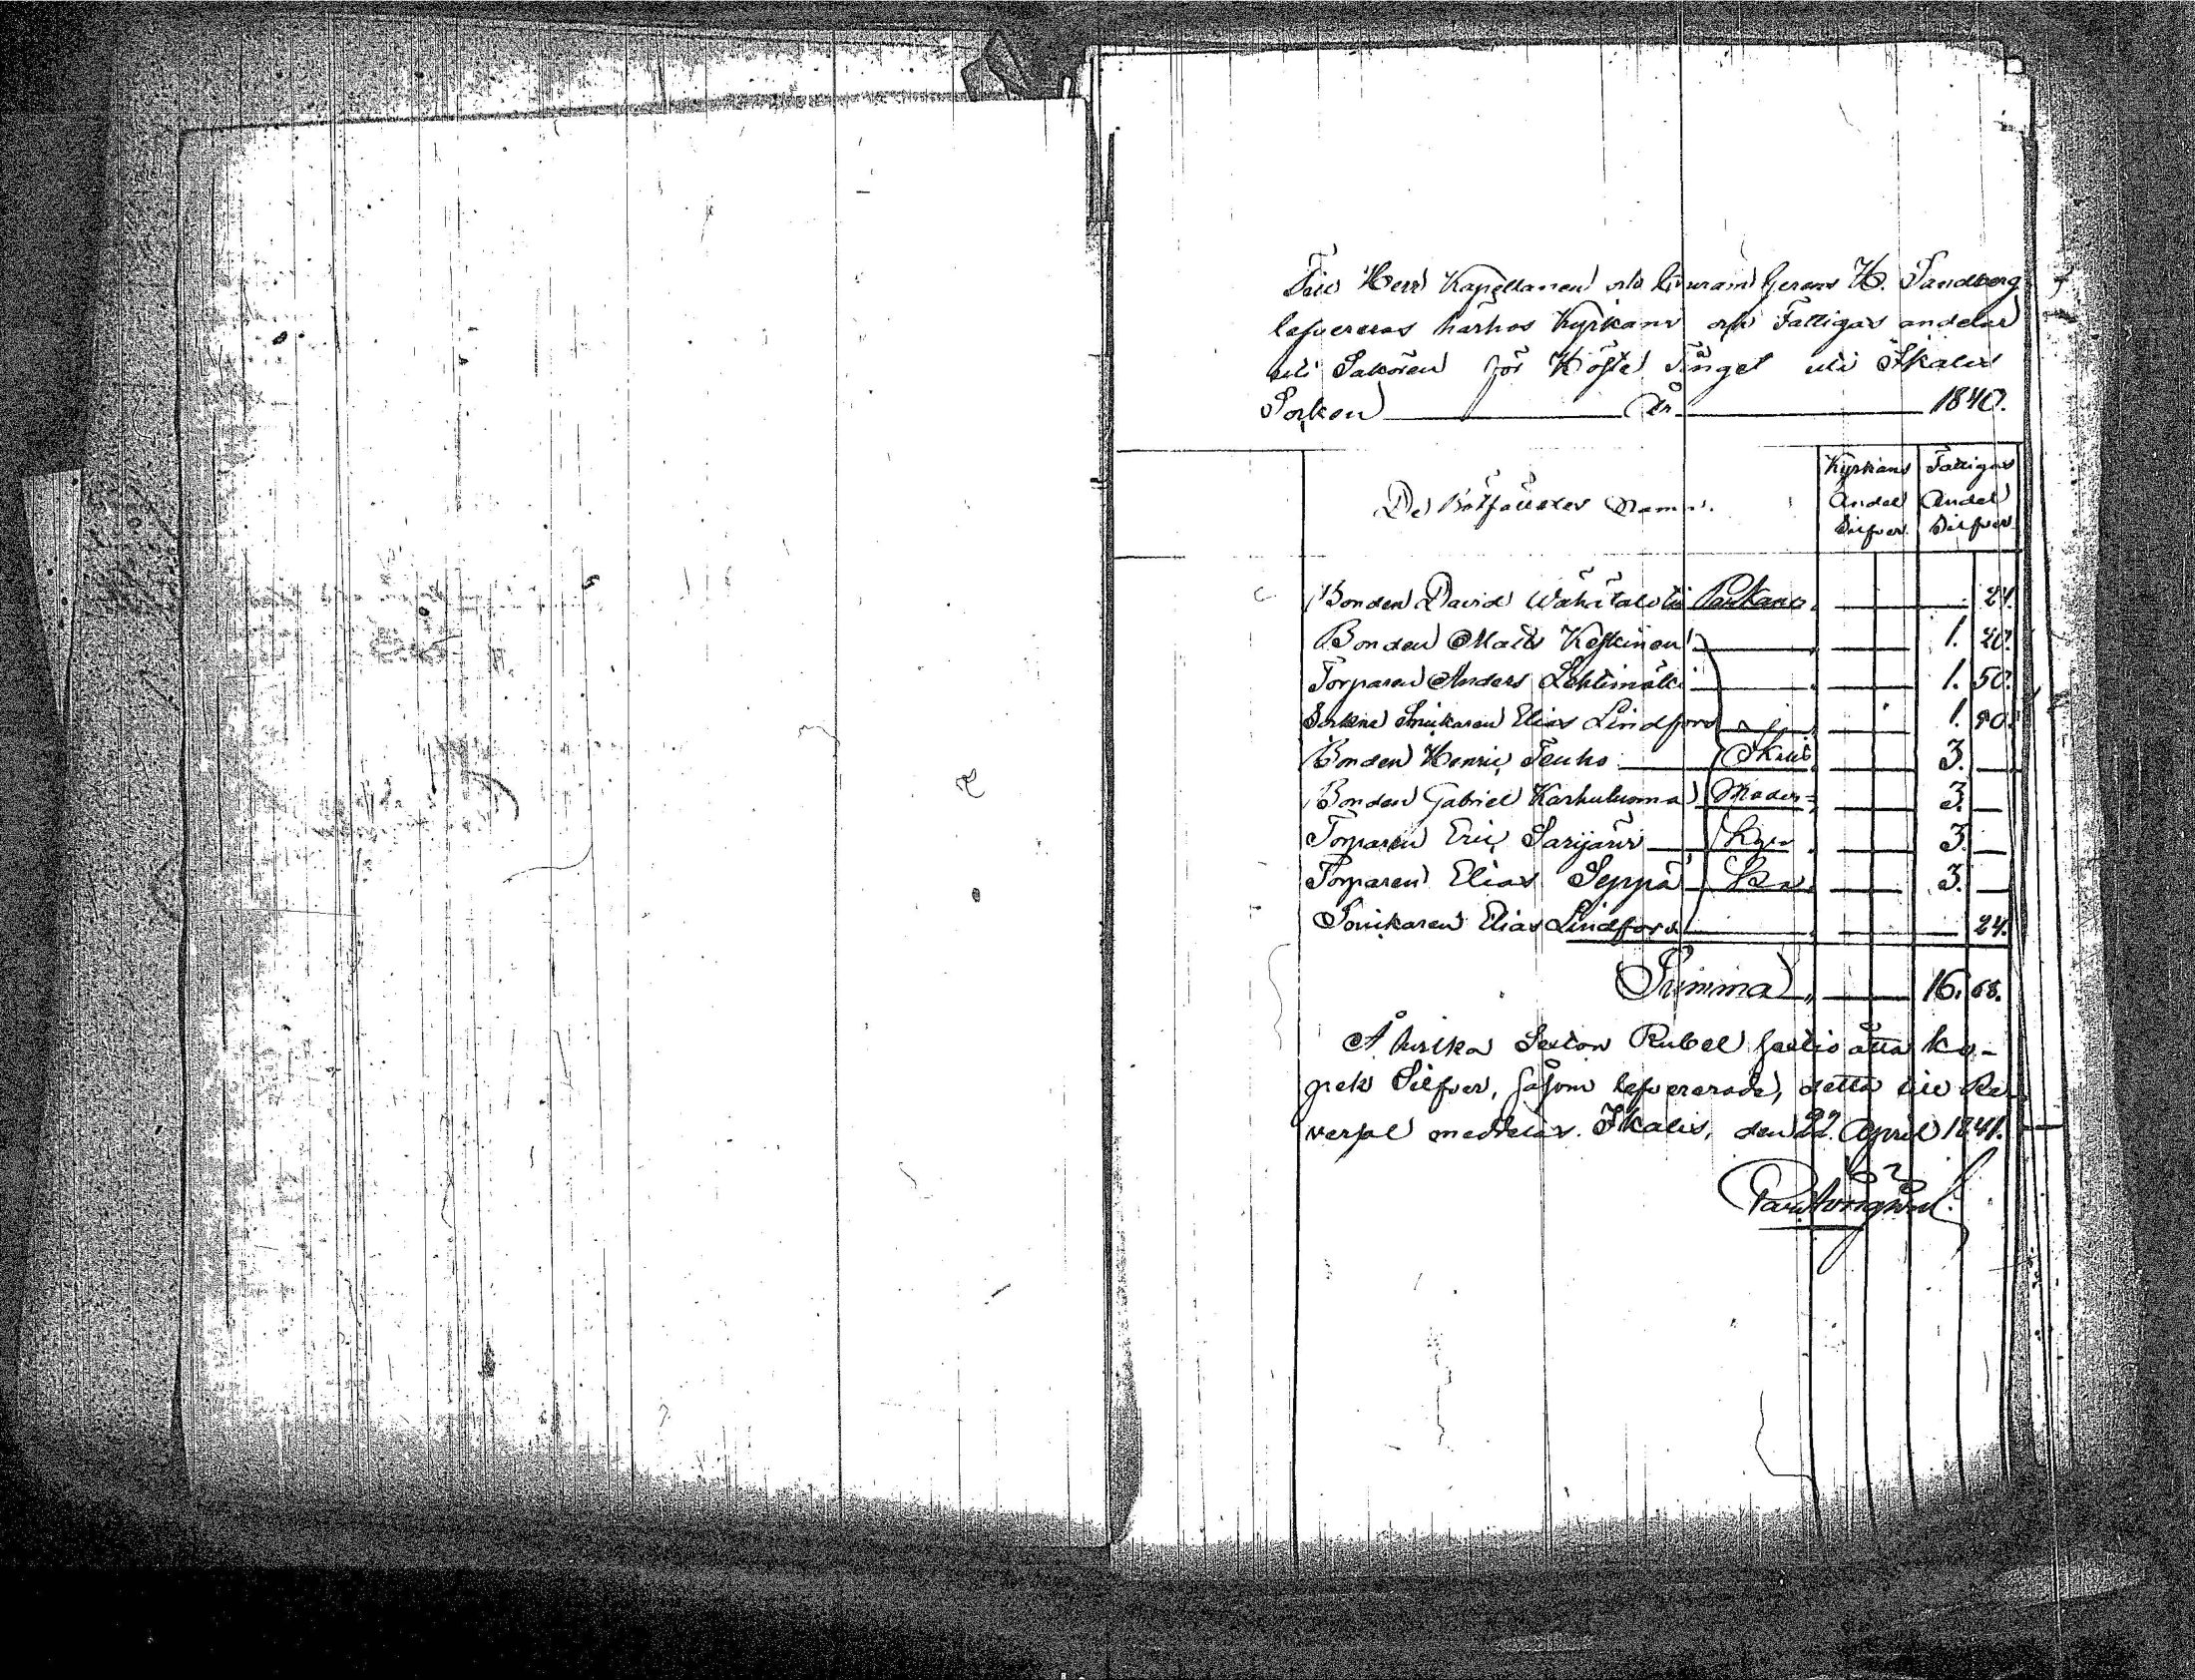 Till Herr Kapellanen och H. Sandberg
lefvereras härhos Kyrkans och Fattigas andelar
uti Saköron för Höste Tinget uti Ikalis
Sorken År 1840.
De Bötfälldes Namn. Kyrkans Andel Silfver. Fattigas Andel Silfver
Bonden David Wähätalo ifrån Parkano 24.
Bonden Matts Keskinen 1. 20.
Torparen Anders Lehtimäki 1. 50.
Sockne Snickaren Elias Lindfors 1. 50.
Bonden Henric Teuho Ikalis 3.
Bonden Gabriel Karhuluoma Moder= 3.
Torparen Eric Sarijärvi Kyr 3.
Torparen Elias Seppä ka 3.
Snickaren Elias Lindfors 24.
Summa 16. 68.
Å hvilka Sexton Rubel Sextio åtta ko-
pek Silfver, såsom lefvererade, detta till Re-
versal meddelas. Ikalis, den 22. April 1841.